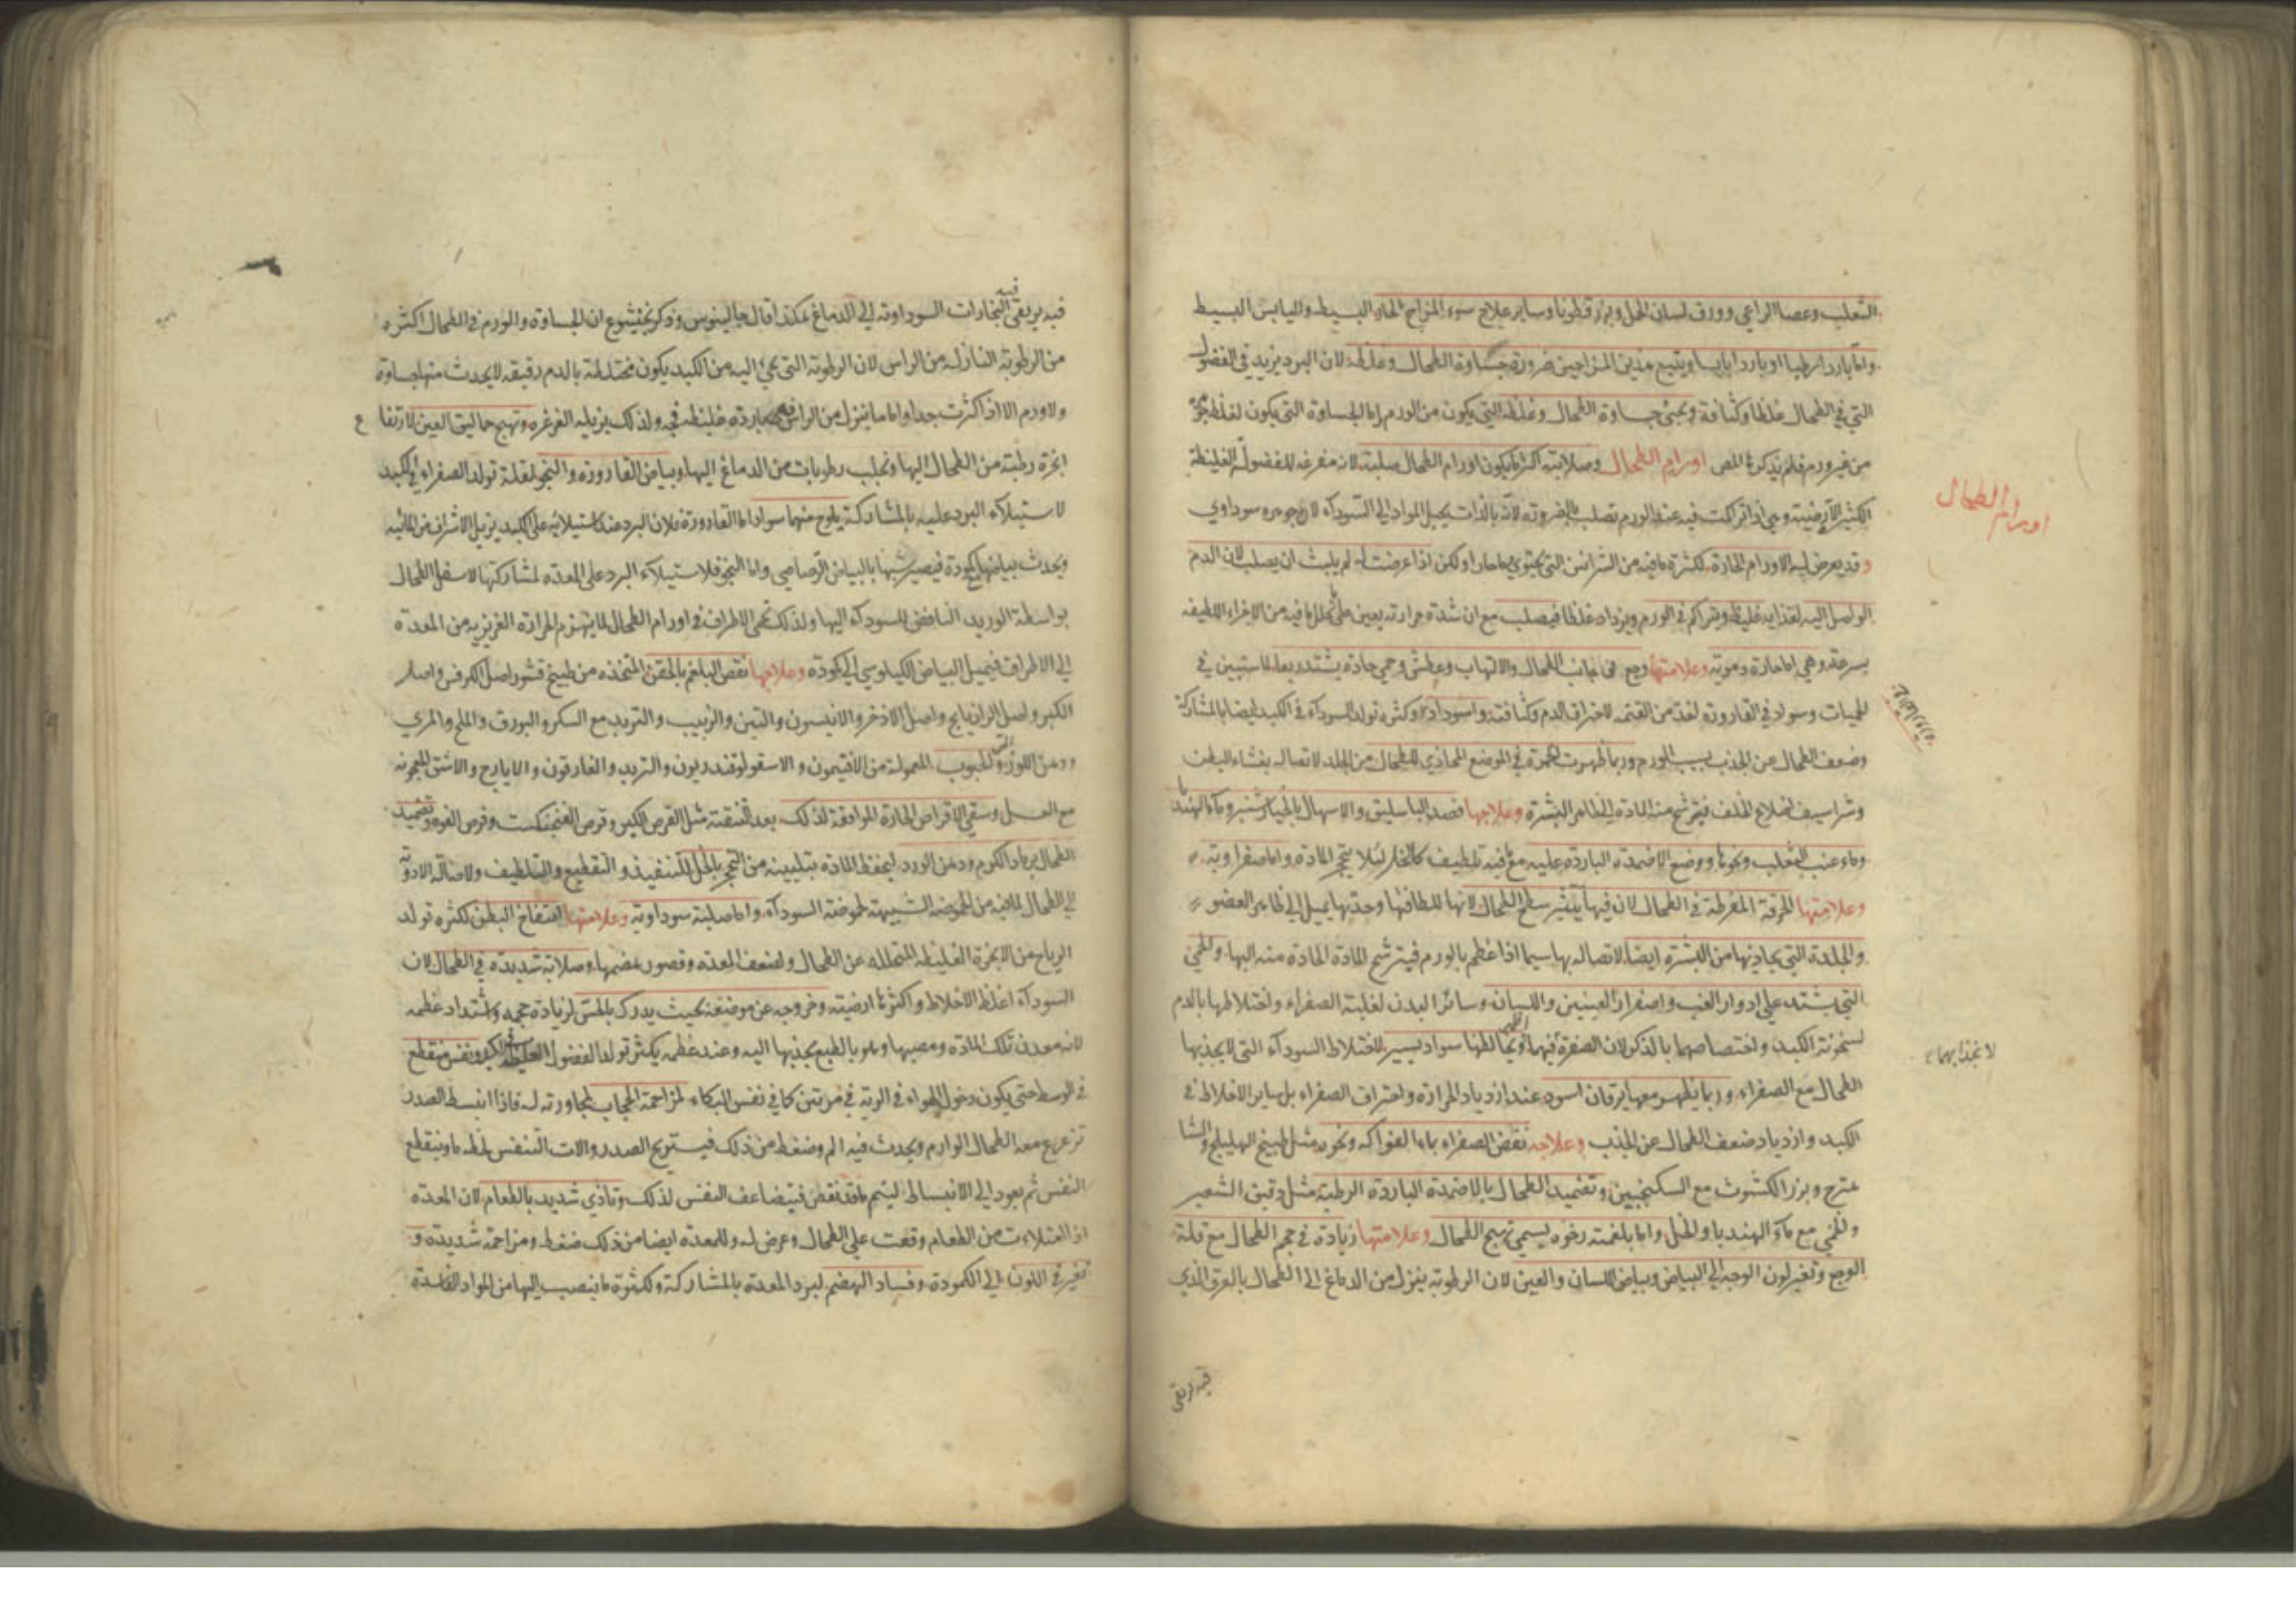 الثعلب وعصا الراعي وورق لسان الحمل وبزر قطونا وساير علاج سوء المزاج الحار البسيط واليابس البسيط
واما باردا رطبا او باردا يابسا ويتبع هذين المزاجين ضرورة جساوة الطحال وغلظه لان البرد يزيد في الفضول
التي في الطحال غلظا وكثافة ويجئ جساوة الطحال وغلظه التي يكون من الورم اما الجساوة التي يكون لغلظ جرمه
من غير ورم فلم يذكرها المص اورام الطحال وصلابته اكثر ما يكون اورام الطحال صلبة لانه مفرغة للفضول الغليظة
الكثير الارضية وهي اذا تراكمت فيه عند الورم تصلب بالضرورة لانه بالذات يحيل المواد الى السوداء لان جوهره سوداوي
وقد يعرض له الاورام الحارة لكثرة ما فيه من الشرائين التي يحتوي دما حارا ولكن اذا عرضت له لم يلبث ان يصلب لان الدم
الواصل اليه لغذائه غليظ ويتراكم في الورم ويزداد غلظا فيصلب مع ان شدة حرارته يعين على تحلل ما فيه من الاجزاء اللطيفه
بسرعة وهي اما حارة دموية وعلامتها وجع في جانب الطحال والالتهاب وعطش وحمى حادة يشتد ربعا لما ستبين في
الحميات وسواد في القارورة لغذ من القتمه لاحتراق الدم وكثافته واسوداده وكثرة تولد السوداء في الكبد ايضا بالمشاركة
وضعف الطحال عن الجذب بسبب الورم وربما ظهرت الحمرة في الموضع المحاذي للطحال من الجلد لاتصاله بغشاء البطن
وشراسيف اضلاع الخلف فيترشح منه المادة الى ظاهر البشرة وعلاجها فصد الباسليق والاسهال بالخيارشنبر وماء الهندبا
وماء عنب الثعلب ونحوها ووضع الاضمدة الباردة عليه مع ما فيه تلطيف كالخل لئلا يتحجر المادة واما صفراوية
وعلامتها الحرقة المفرطة في الطحال لان فيها يتبثر سطح الطحال لانها للطافتها وحدتها يميل الى ظاهر العضو
والجلدة التي يحاذيها من البشرة ايضا لاتصاله بها سيما اذا عظم بالورم فيترشح المادة الحادة منه اليها والحمى
التي يشتد على ادوار الغب واصفرار العينين واللسان وسائر البدن لغلبة الصفراء واختلاطها بالدم
لسخونة الكبد واختصاصهما بالذكر لان الصفرة فيهما اظهر ويخالطها سواد يسير لاختلاط السوداء التي لا يجذبها
الطحال مع الصفراء وربما يظهر معها يرقان اسود عند ازدياد الحرارة واحتراق الصفراء بل ساير الاخلاط في
الكبد وازدياد ضعف الطحال عن الجذب وعلاجه نقض الصفراء بماء الفواكه ونحوه مثل طبيخ الهليلج والشا
هترج وبزر الكشوث مع السكنجبين وتضميد الطحال بالاضمدة الباردة الرطبة مثل دقيق الشعير
والخطمي مع ماء الهندبا والخل واما بلغمية رخوه يسمى تهبج الطحال وعلامتها زيادة في حجم الطحال مع قلة
الوجع وتغير لون الوجه الى البياض وبياض اللسان والعين لان الرطوبة ينزل من الدماغ الى الطحال بالعرق الذي
فيه يرتقي
اورام الطحال
لا نجذابهما
فيه يرتقي البخارات السوداوية الى الدماغ هكذا قال جالينوس وذكر بختيشوع ان الجساوة والورم في الطحال اكثره
من الرطوبة النازلة من الراس لان الرطوبة التي تجئ اليه من الكبد يكون مختلطة بالدم رقيقه لا يحدث منها جساوة
ولا ورم الا اذا كثرت جدا واما ما ينزل من الراس فهي باردة غليظه فجه ولذلك يزيله الغرغره وتهبج حماليق العين لارتفاع
ابخرة رطبة من الطحال اليها وتجلب رطوبات من الدماغ اليها وبياض القارورة والنجو لقلة تولد الصفراء في الكبد
لاستيلاء البرد عليه بالمشاركة يلوح منهما سواد اما القارورة فلان البرد عند استيلائه على الكبد يزيل الاشراف عن المائية
ويحدث ببياضها كمودة فيصير شبها بالبياض الرصاصي واما النجو فلاستيلاء البرد على المعدة لمشاركتها لاسفل الطحال
بواسطة الوريد النافض للسوداء اليها ولذلك تحمى الاطراف في اورام الطحال لما ينهزم الحرارة الغريزيه من المعدة
الى الاطراف فيميل البياض الكيلوسي الى كمودة وعلاجها نقض البلغم بالحقن المتخذه من طبيخ قشور اصل الكرفس واصل
الكبر واصل الرازيانج واصل الاذخر والانيسون والتين والزبيب والتربد مع السكر والبورق والملح والمري
ودهن اللوز والحبوب المعمولة من الافتيمون والاسقولوقندريون والتربد والغارقون والايارج والاشق المعجونه
مع العسل وسقي الاقراص الحارة الموافقة لذلك بعد التنقية مثل القرص الكبر وقرص الفنجنكشت وقرص الفوه وتضميد
الطحال برماد الكرم ودهن الورد ليحفظ المادة بتليينه من التحجر بالخل للتنفيذ والتقطيع والتلطيف ولايصاله الادوية
الى الطحال لما فيه من الحموضة الشبيهة لحموضة السوداء واما صلبة سوداوية وعلامتها انتفاخ البطن لكثرة تولد
الرياح من الابخرة الغليظه المتحلله عن الطحال ولضعف المعده وقصور هضمها وصلابة شديدة في الطحال لان
السوداء اغلظ الاخلاط واكثرها ارضية وخروجه عن موضعه بحيث يدرك بالمس لزيادة حجمه واشتداد عظمه
لانه معدن تلك المادة ومصبها وهو بالطبع يجذبها اليه وعند عظمه يكثر تولد الفضول الغليظه ونفس منقطع
في الوسط حتى يكون دخول الهواء في الرية في مرتين كما في نفس البكاء لمزاحمة الحجاب لمجاورته له فاذا انبسط الصدر
تزعزع معه الطحال الوارم ويحدث فيه الم وضغط من ذلك فيستريح الصدر والات التنفس لحظه ما وينقطع
النفس ثم يعود الى الانبساط ليتم ما قد نقص فيتضاعف النفس لذلك وتاذي شديد بالطعام لان المعدة
اذا امتلاءت من الطعام وقعت على الطحال وعرض له وللمعدة ايضا من ذلك ضغط ومزاحمة شديدة و
تغير في اللون الى الكمودة وفساد الهضم لبرد المعدة بالمشاركة ولكثرة ما ينصب اليها من المواد الفاسدة